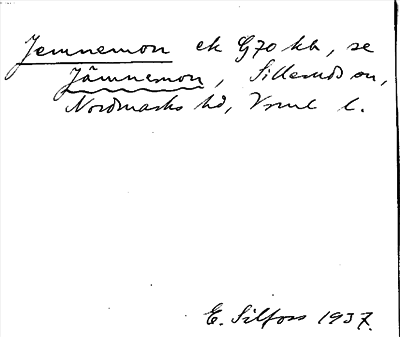 Jemnemon ek G70 kb, se
Jämnemon, Silleruds sn,
Nordmarks hd, Vrml l.
E. Silfoss 1937.